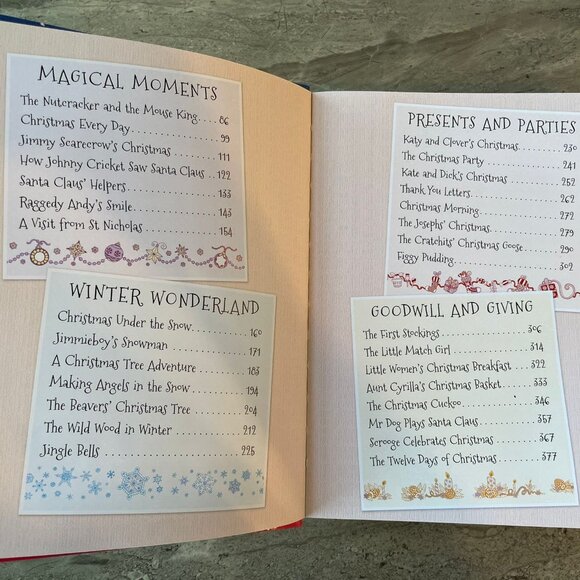 MAGICAL MOMENTS
The Nutcracker and the Mouse King.... 86
Christmas Every Day............... 99
Jimmy Scarecrow's Christmas........ 111
How Johnny Cricket Saw Santa Claus .. 122
Santa Claus' Helpers............... 133
Raggedy Andy's Smile.............. 143
A Visit from St Nicholas............ 154
WINTER WONDERLAND
Christmas Under the Snow.......... 160
Jimmieboy's Snowman............. 171
A Christmas Tree Adventure........ 183
Making Angels in the Snow......... 194
The Beavers' Christmas Tree........ 204
The Wild Wood in Winter.......... 212
Jingle Bells.................... 225
PRESENTS AND PARTIES
Katy and Clover's Christmas......... 230
The Christmas Party.............. 241
Kate and Dick's Christmas.......... 252
Thank You Letters................ 262
Christmas Morning............... 272
The Josephs' Christmas............. 279
The Cratchits' Christmas Goose...... 290
Figgy Pudding................... 302
GOODWILL AND GIVING
The First Stockings............... 306
The Little Match Girl............. 314
Little Women's Christmas Breakfast.... 322
Aunt Cyrilla's Christmas Basket...... 333
The Christmas Cuckoo............. 346
Mr Dog Plays Santa Claus.......... 357
Scrooge Celebrates Christmas........ 367
The Twelve Days of Christmas....... 377